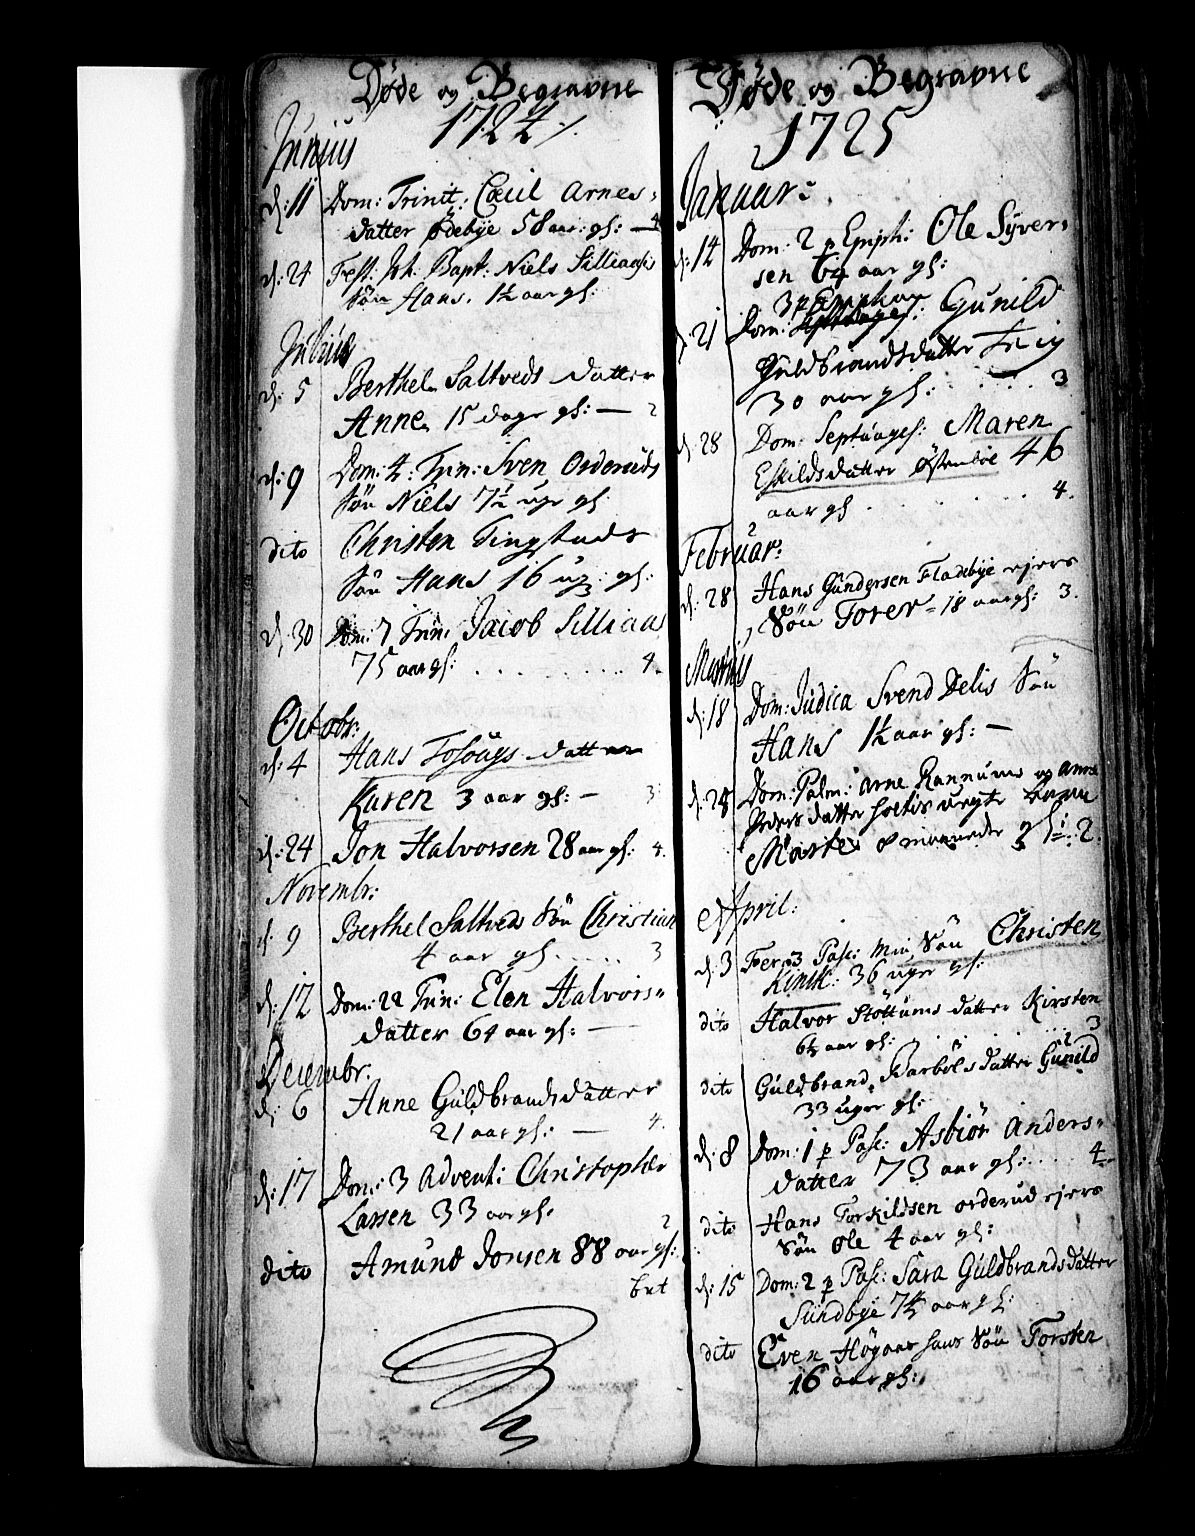 Døde og Begravne
1724
Junius
d: 11 Dom: Trinit: Cecil Arnes-
datter Ødebye 58 aar gl: — 4
d: 24 Fest: Joh: Bapt: Niels Silliaasis
Søn Hans. 1½ aar gl:
Julius
d: 5 Berthel Saltveds datter
Anne 15 dage gl: — 2
d: 9 Dom: 4: Trin: Sven Orderuds
Søn Niels 7½ uge gl
dito Christen Tingstads
Søn Hans 16 ug: gl:
d: 30 Dom: 7 Trin: Jacob Silliaas
75 aar gl: . . . . . . . 4.
Octobr:
d: 4 Hans Fosougs datter
Karen 3 aar gl: — 3
d: 24 Jon Halvorsen 28 aar gl: 4.
Novembr:
d. 9 Berthel Saltveds Søn Christian
4 aar gl . . . . . 3
d: 12 Dom: 22 Trin: Elen Halvors-
datter 64 aar gl: —
Decembr.
d: 6 Anne Guldbrandsdatter
21 aar gl: — 4.
d: 17 Dom: 3 Advent: Christopher
Lassen 33 aar gl. 2
dito Amund Jonsen 88 aar gl:
bet
Døde og Begravne
1725
Januar:
d: 14 Dom: 2 p Epiph: Ole Syver-
sen 64 aar gl:
3 p Epiphan
d: 21 Dom: Septuages: Gunild
Guldbrandsdatter
30 aar gl: . . . . . 3
d: 28 Dom: Septuages: Maren
Eskildsdatter Østenbøe 46
aar gl . . . . . . 4.
Februar:
d: 28 Hans Gundersen Fladebye ejers
Søn Torer - 18 aar gl: 3.
Martius
d: 18 Dom: Judica Svend Delis Søn
Hans 1½ aar gl: —
d: 28 Dom: Palm: Arne Rannums og Anne
Peders datter uegte barn
Marte 8 maaneder gl: 2.
April:
d: 3 Fer: 3 Pasc: Min Søn Christen
Kinck: 36 uger gl:
dito Halvor Støttums datter Kirsten
6½ aar gl: . . . . . . 3
dito Guldbrand Karbøls datter Gunild 2
33 uger gl:
d: 8 Dom: 1 p Pasc: Asbiør Anders-
datter 73 aar gl: . . . . 4.
dito Hans Torkildsen orderud ejers
Søn Ole 4 aar gl:
d: 15 Dom: 2 p Pasc: Sara Guldbrandsdatter
Sundbye 74 aar gl:
dito Even Høgaas hans Søn Torsten
16 aar gl: